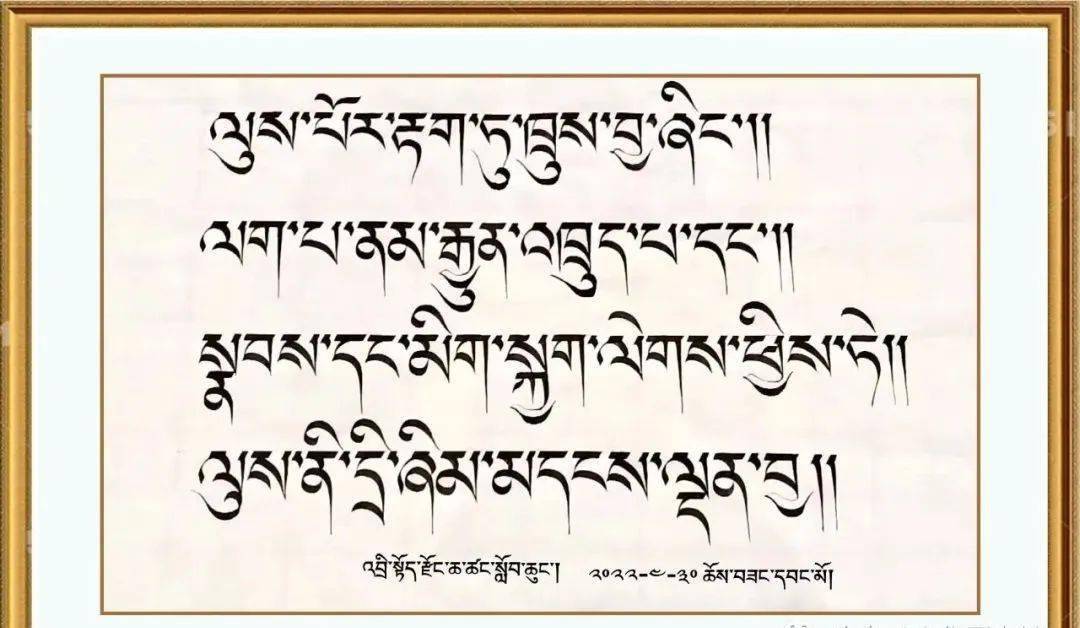 ལུས་པོར་རྟག་ཏུ་ཁྲུས་བྱ་ཞིང་།།
ལག་པ་ནམ་རྒྱུན་འཁྲུད་པ་དང་།།
སྣབས་དང་མིག་སྐྱག་ལེགས་ཕྱིས་ཏེ།།
ལུས་ནི་དྲི་ཞིམ་མདངས་ལྡན་བྱ།།
འབྲི་སྟོད་རྫོང་ཆ་ཚང་སློབ་ཆུང་། ༢༠༢༢-༤-༣༠ ཆོས་བཟང་དབང་མོ།